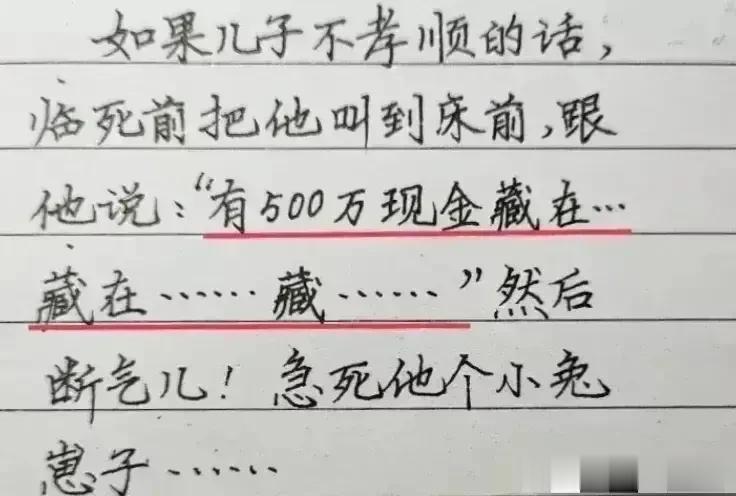 如果儿子不孝顺的话，
临死前把他叫到床前，跟
他说：“有500万现金藏在…
藏在……藏……”然后
断气儿！急死他个小兔
崽子……